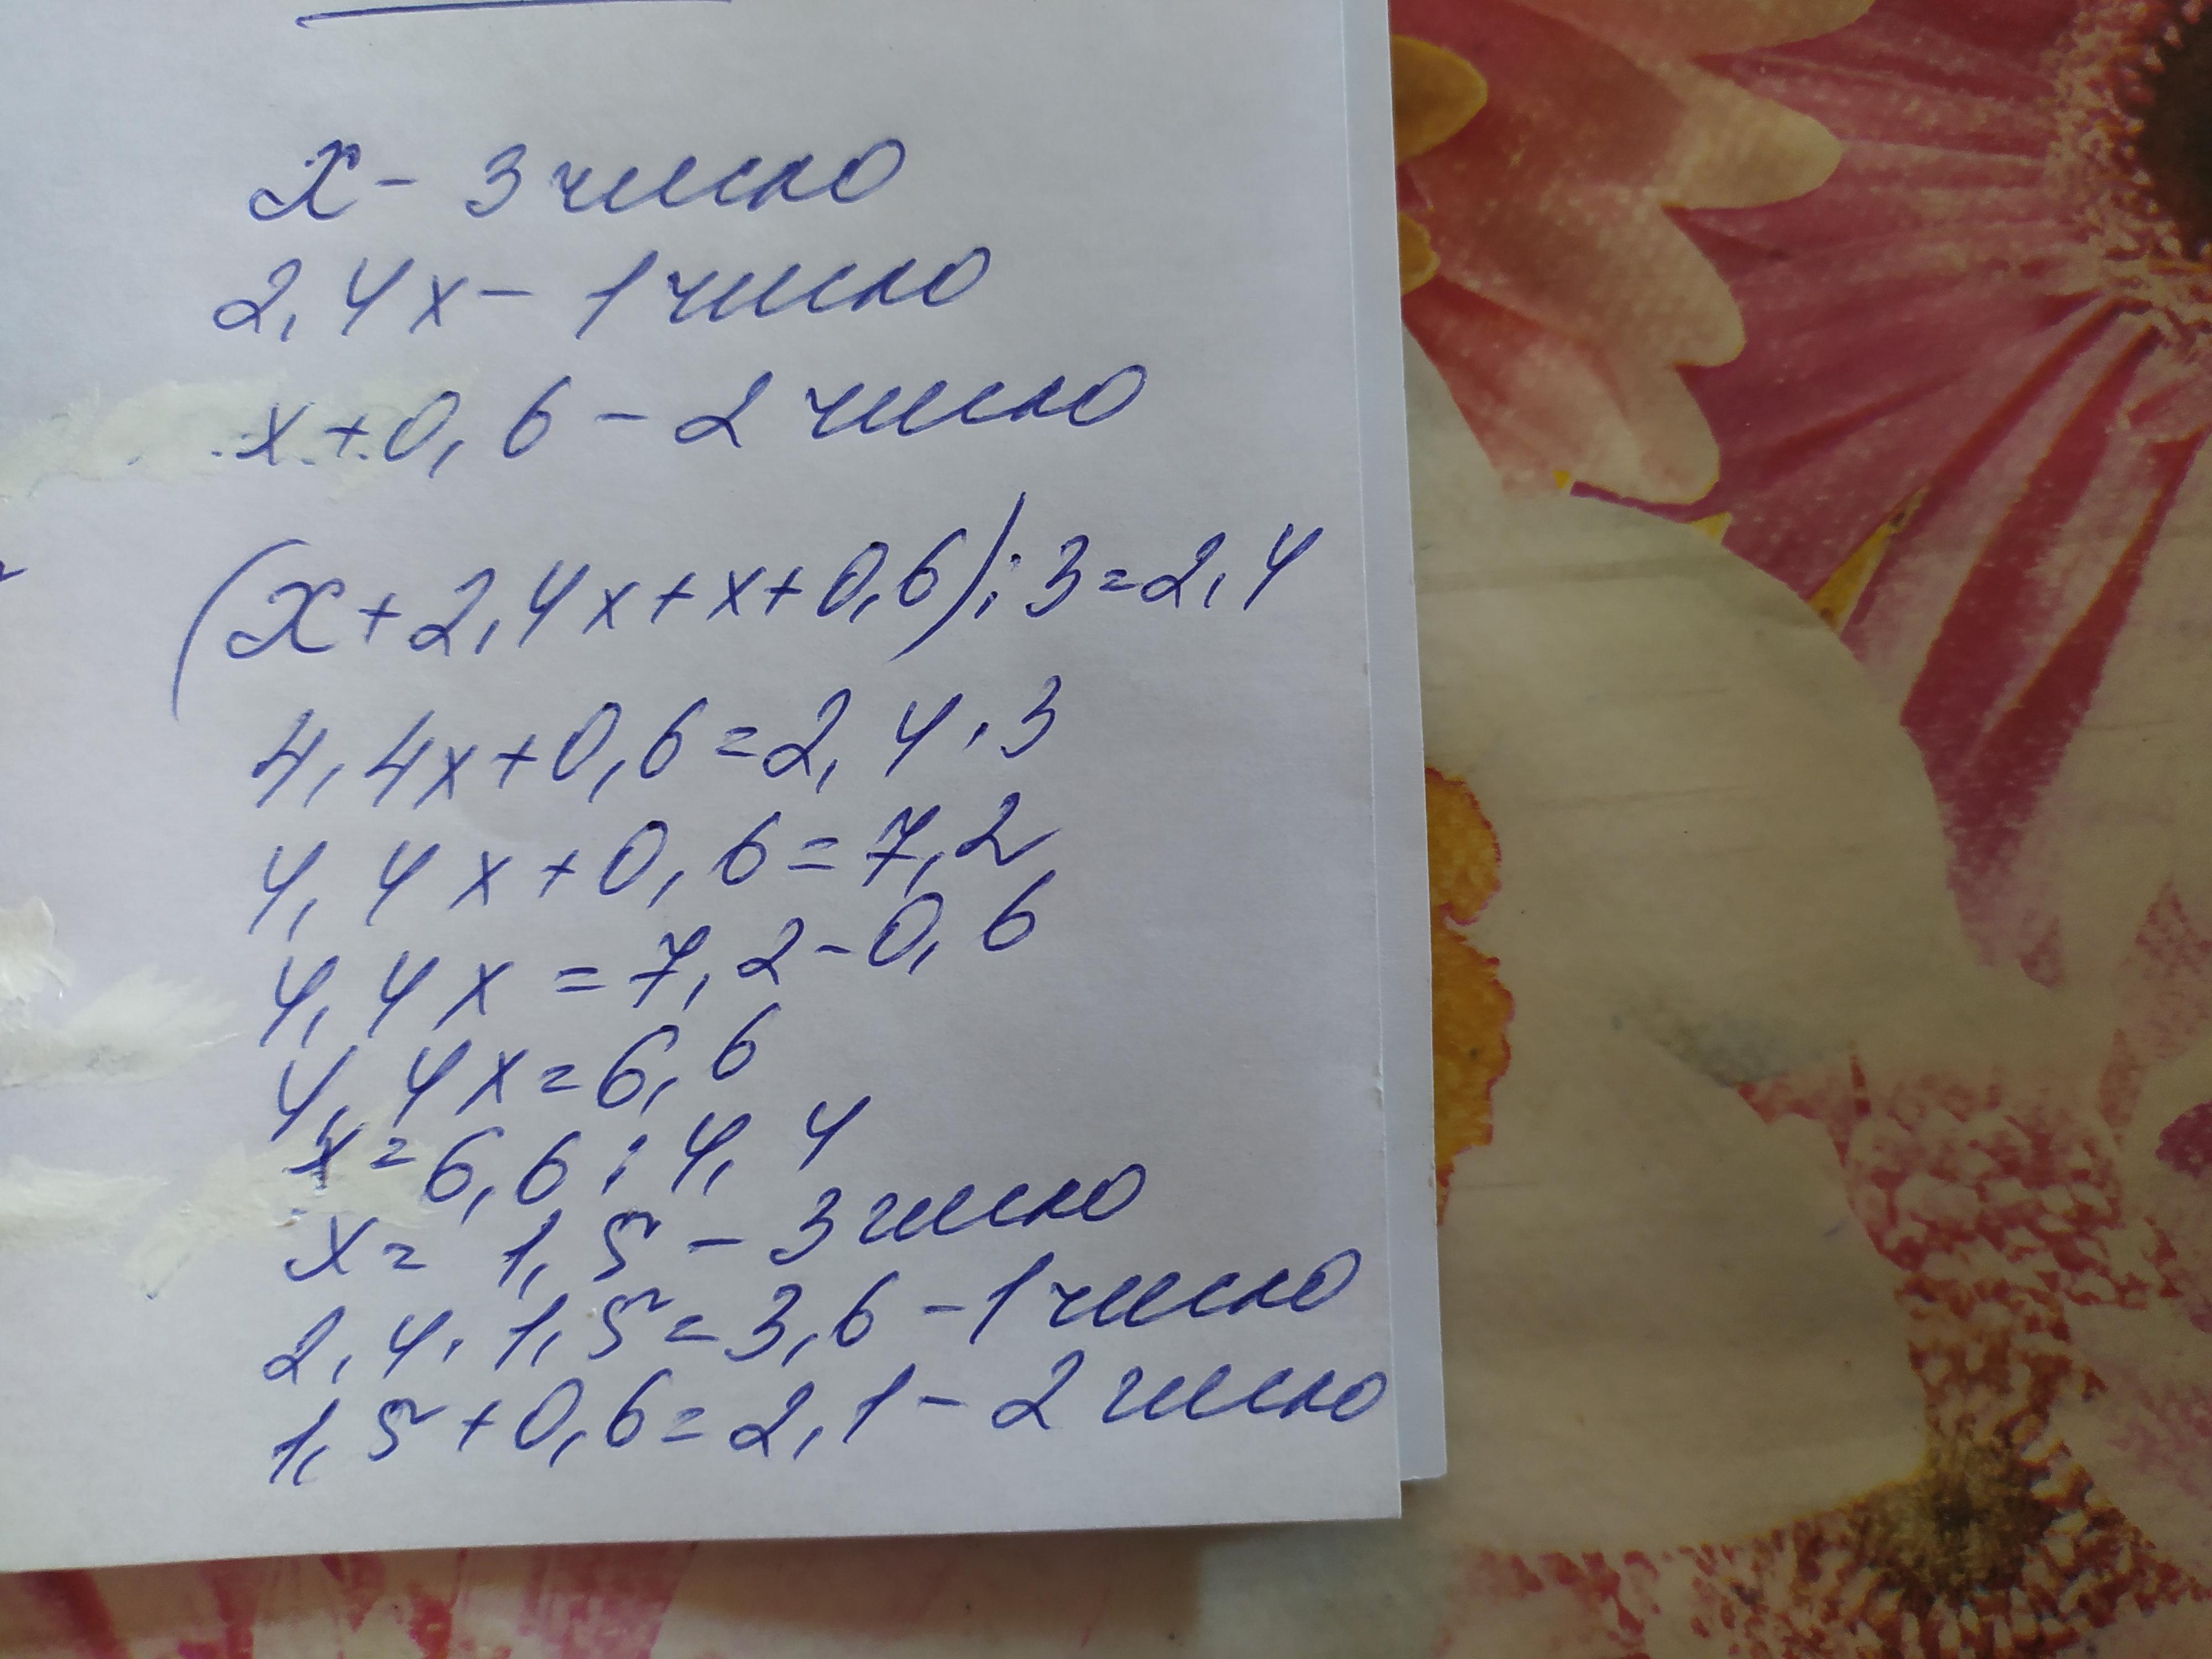 x - 3 число
2,4x - 1 число
x+0,6 - 2 число
(x+2,4x+x+0,6):3=2,4
4,4x+0,6=2,4·3
4,4x+0,6=7,2
4,4x=7,2-0,6
4,4x=6,6
x=6,6:4,4
x=1,5 - 3 число
2,4·1,5=3,6 - 1 число
1,5+0,6=2,1 - 2 число